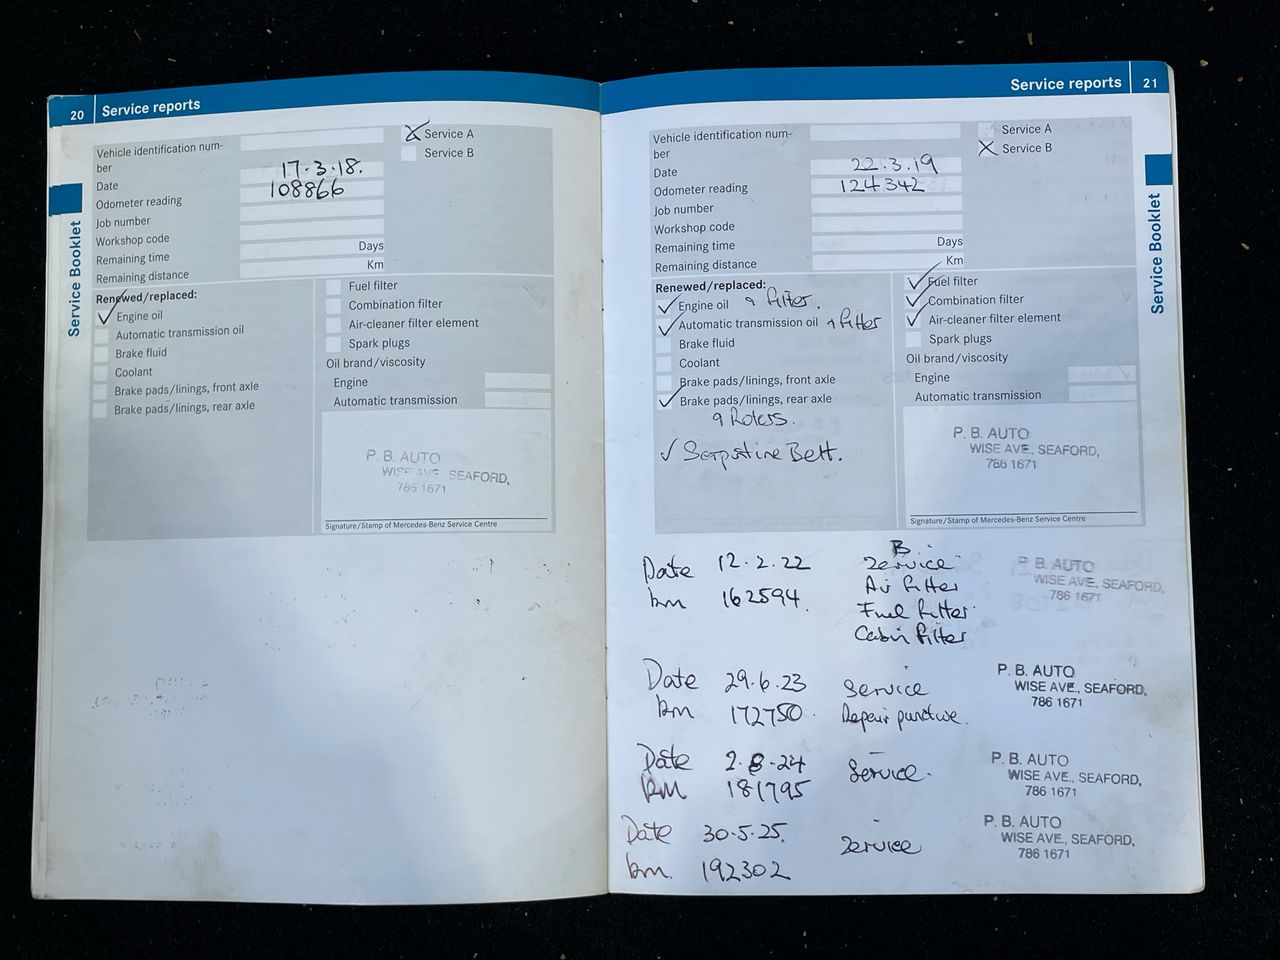 20 Service reports
Service Booklet
Vehicle identification num-
ber
Date 17.3.18.
Odometer reading 108866
Job number
Workshop code
Remaining time Days
Remaining distance Km
Service A
Service B
Renewed/replaced:
Engine oil
Automatic transmission oil
Brake fluid
Coolant
Brake pads/linings, front axle
Brake pads/linings, rear axle
Fuel filter
Combination filter
Air-cleaner filter element
Spark plugs
Oil brand/viscosity
Engine
Automatic transmission
P. B. AUTO
WISE AVE SEAFORD,
786 1671
Signature/Stamp of Mercedes-Benz Service Centre
Service reports 21
Service Booklet
Vehicle identification num-
ber
Date 22.3.19
Odometer reading 124342
Job number
Workshop code
Remaining time Days
Remaining distance Km
Service A
Service B
Renewed/replaced:
Engine oil filter.
Automatic transmission oil filter
Brake fluid
Coolant
Brake pads/linings, front axle
Brake pads/linings, rear axle
Rotors.
Serpstine Belt.
Fuel filter
Combination filter
Air-cleaner filter element
Spark plugs
Oil brand/viscosity
Engine
Automatic transmission
P. B. AUTO
WISE AVE., SEAFORD,
786 1671
Signature/Stamp of Mercedes-Benz Service Centre
Date 12.2.22 B Service
km 162594. Air filter
Fuel filter
Cabin filter
P. B. AUTO
WISE AVE, SEAFORD,
786 1671
Date 29.6.23 Service
km 172750. Repair puncture.
P. B. AUTO
WISE AVE., SEAFORD,
786 1671
Date 2.8.24 Service.
km 181795
P. B. AUTO
WISE AVE., SEAFORD,
786 1671
Date 30.5.25. Service
km. 192302
P. B. AUTO
WISE AVE., SEAFORD,
786 1671